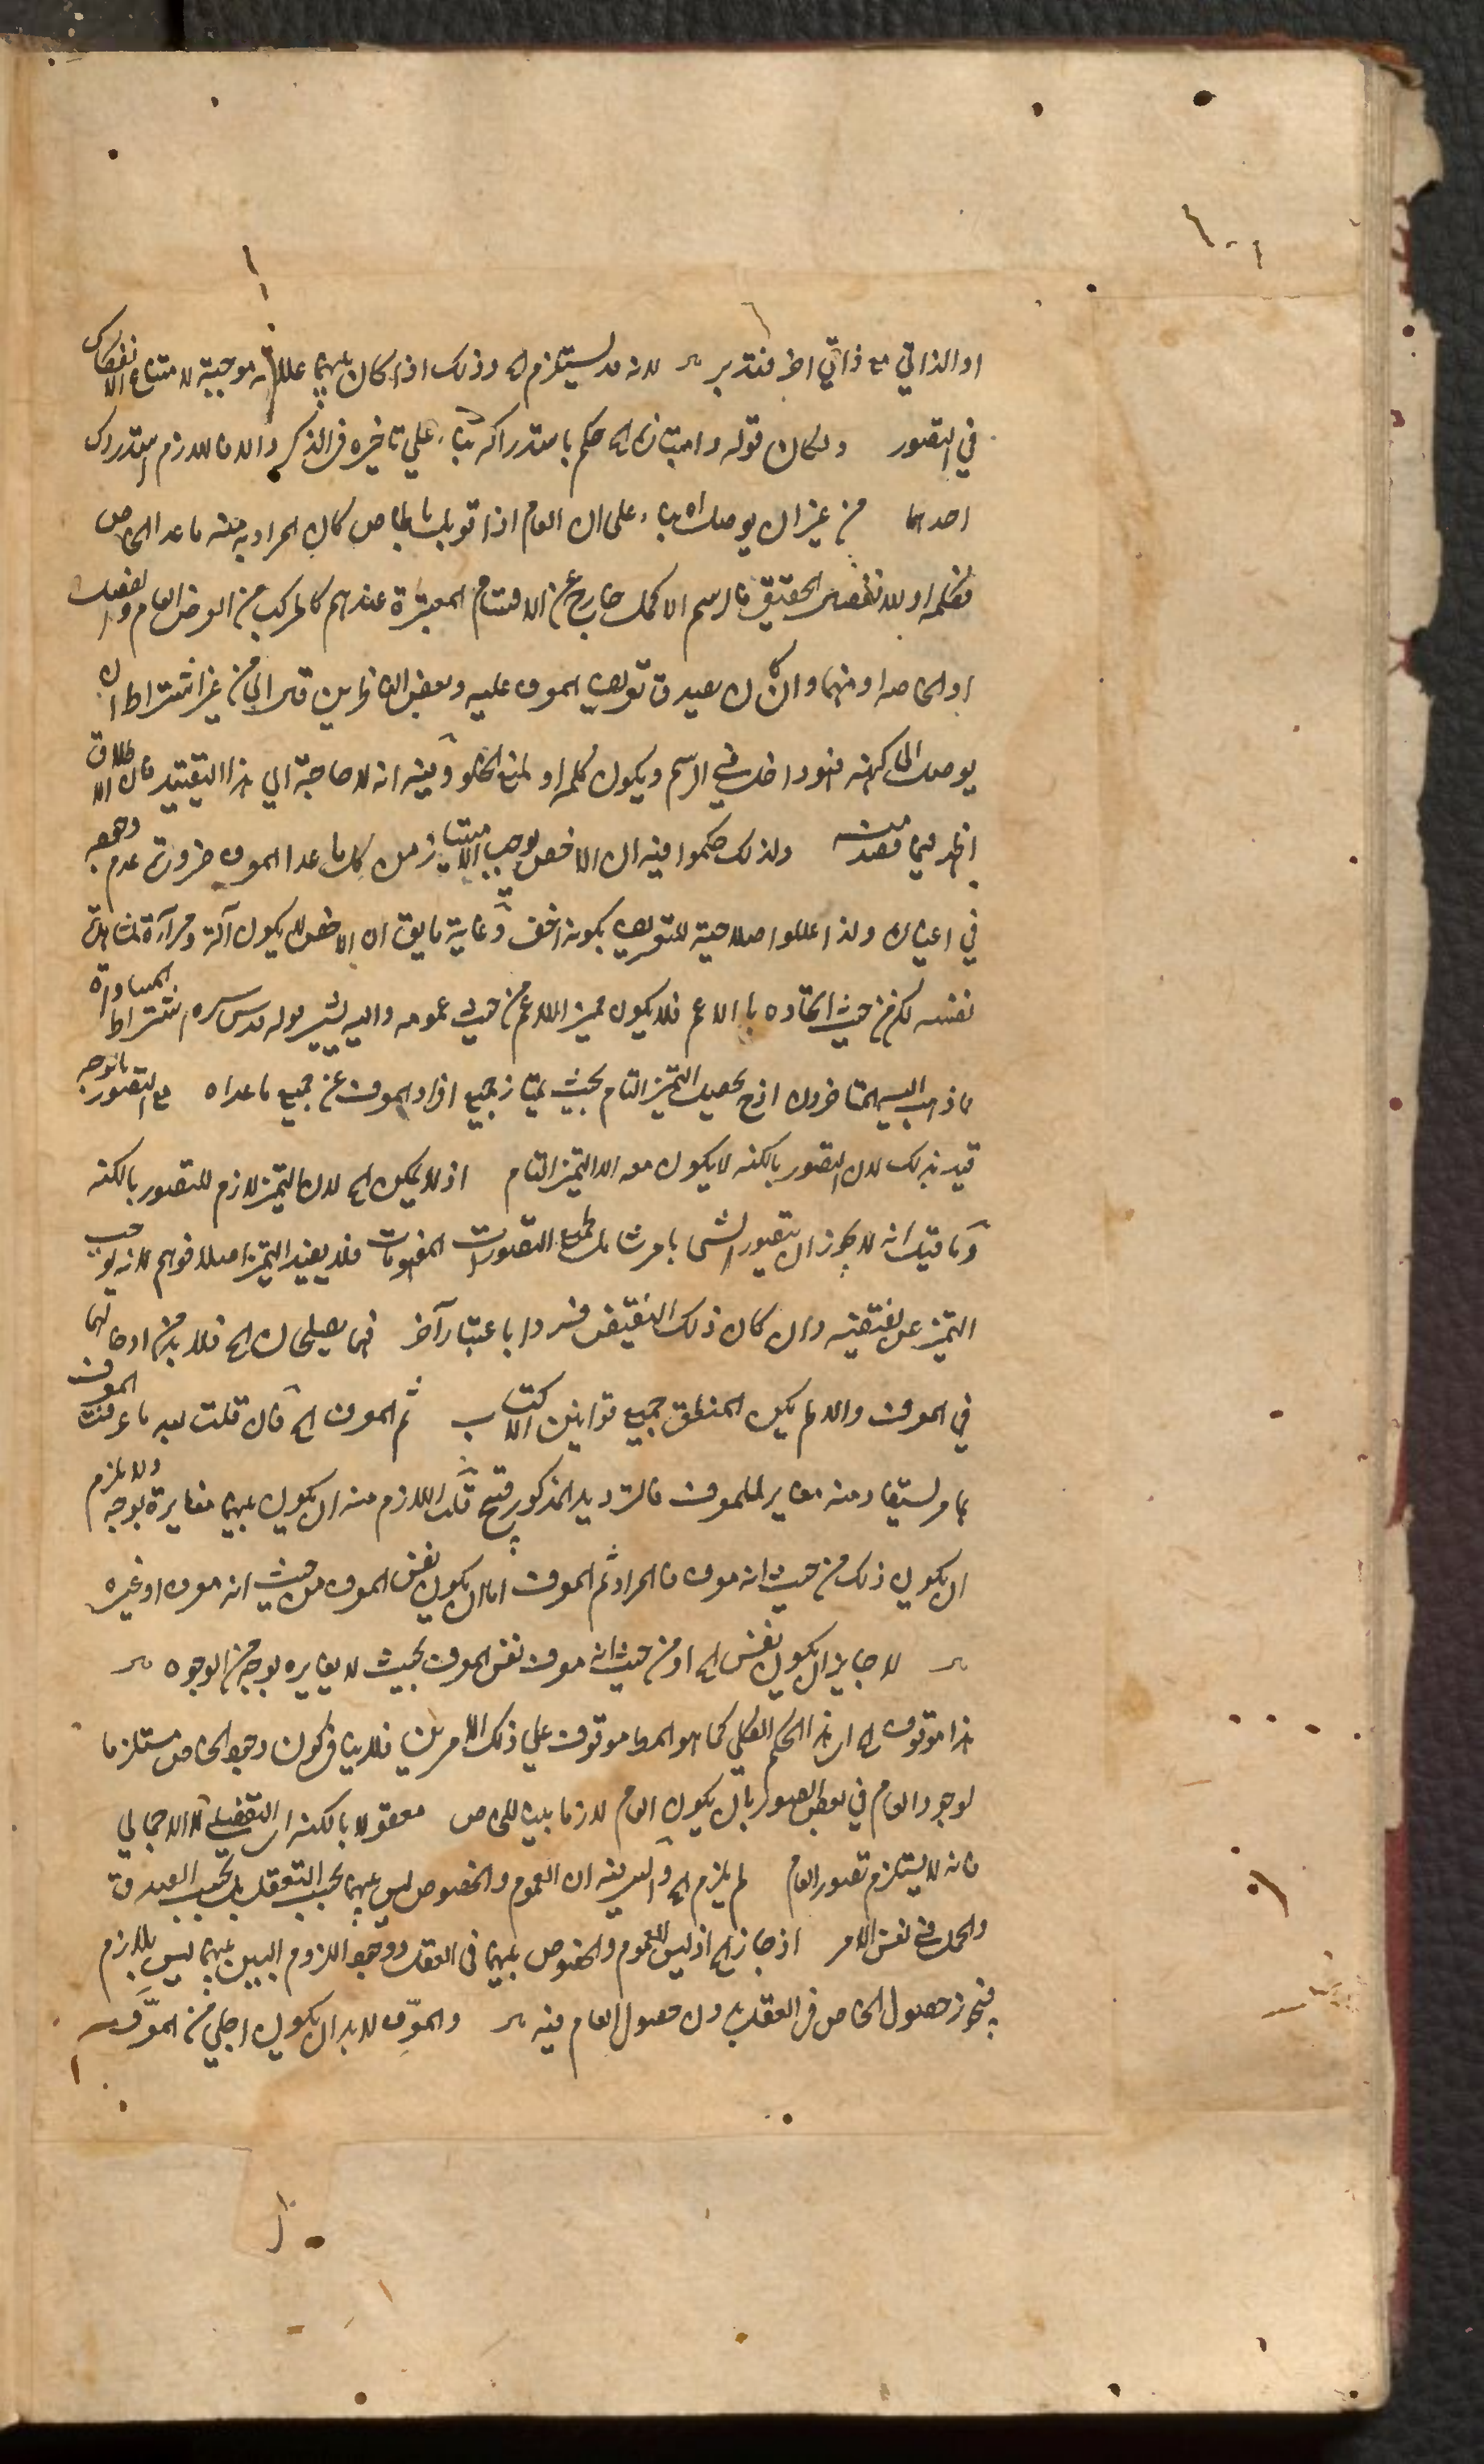 او الذاتي مع ذاتي اخر فتدبر لانه قد يستلزم الخ وذلك اذا كان بينهما علاقة موجبة لامتناع الانفكاك
في التصور ولكان قوله وامتيازه الخ حكم باستدراكه بناء على تاخيره في الذكر والا فاللازم استدراك
احدهما من غير ان يوصل اه بناء على ان العام اذا قوبل بالخاص كان المراد به منه ما عدا الخاص
فكلمة او للانفصال الحقيقي فالرسم الاكمل خارج عن الاقسام المعتبرة عندهم كالمركب من العرض العام والفصل
او الخاصة او منهما وان كان يصدق تعريف المعرف عليه وبعض الناظرين قال اي من غير اشتراط ان
يوصل الى كنهه فهو داخل في الرسم ويكون كلمة او لمنع الخلو وفيه انه لا حاجة الى هذا التقييد فان الاطلاق
اظهر فيما قصدته ولذلك حكموا فيه ان الاخص يوجب الامتياز من كل ما عدا المعرف ضرورة عدم وجوده
في اغياره ولذا عللوا صلاحية للتعريف بكونه اخفى وغاية ما يق ان الاخص لا يكون آلة ومرآة لمشاهدة
نفسه لكن من حيث اتحاده بالاعم فلا يكون مميزا للاعم من حيث عمومه واليه يشير قوله قدس سره اشتراط المساواة
ما ذهب اليه المتاخرون اذ ح يحصل التميز التام بحيث يمتاز جميع افراد المعرف عن جميع ما عداه مع التصور بالوجه
قيد بذلك لان التصور بالكنه لا يكون معه الا التميز التام اذ لا يمكن الخ لان التميز لازم للتصور بالكنه
وما قيل انه لا يجوز ان يتصور الشي بامر شامل لجميع التصورات المفهومات فلا يفيد التميز اصلا فوهم لانه يوجب
التميز عن نقيضه وان كان ذلك النقيض فردا باعتبار آخر فهما يصلحان الخ فلا بد من ادخالهما
في المعرف والا لم يكن المنطق جميع قوانين الاكتساب ثم المعرف الخ فان قلت بعد ما عرفت المعرف
بما يستفاد منه مغاير للمعرف فالترديد المذكور قبيح قلت اللازم منه ان يكون بينهما مغايرة بوجه ولا يلزم
ان يكون ذلك من حيث انه معرف فالمراد ثم المعرف اما ان يكون نفس المعرف من حيث انه معرف او غيره
لا جايز ان يكون نفس الخ او من حيث انه معرف نفس المعرف بحيث لا يغايره بوجه من الوجوه
هذا موقوف الخ ان هذا الحكم الكلي كما هو المط موقوف على ذلك الامرين فلا ينافي كون وجود الخاص مستلزما
لوجود العام في بعض الصور بان يكون العام لازما بينا للخاص معقولا بالكنه اي التفصيلي لا الاجمالي
فانه لا يستلزم تصور العام لم يلزم الخ والسر فيه ان العموم والخصوص ليس بينهما بحسب التعقل بل بحسب الصدق
والحمل في نفس الامر اذ جاز الخ اذ ليس العموم والخصوص بينهما في العقل ووجود اللزوم البين بينهما ليس بلازم
فيجوز حصول الخاص في العقل بدون حصول العام فيه والمعرِّف لا بد ان يكون اجلى من المعرَّف